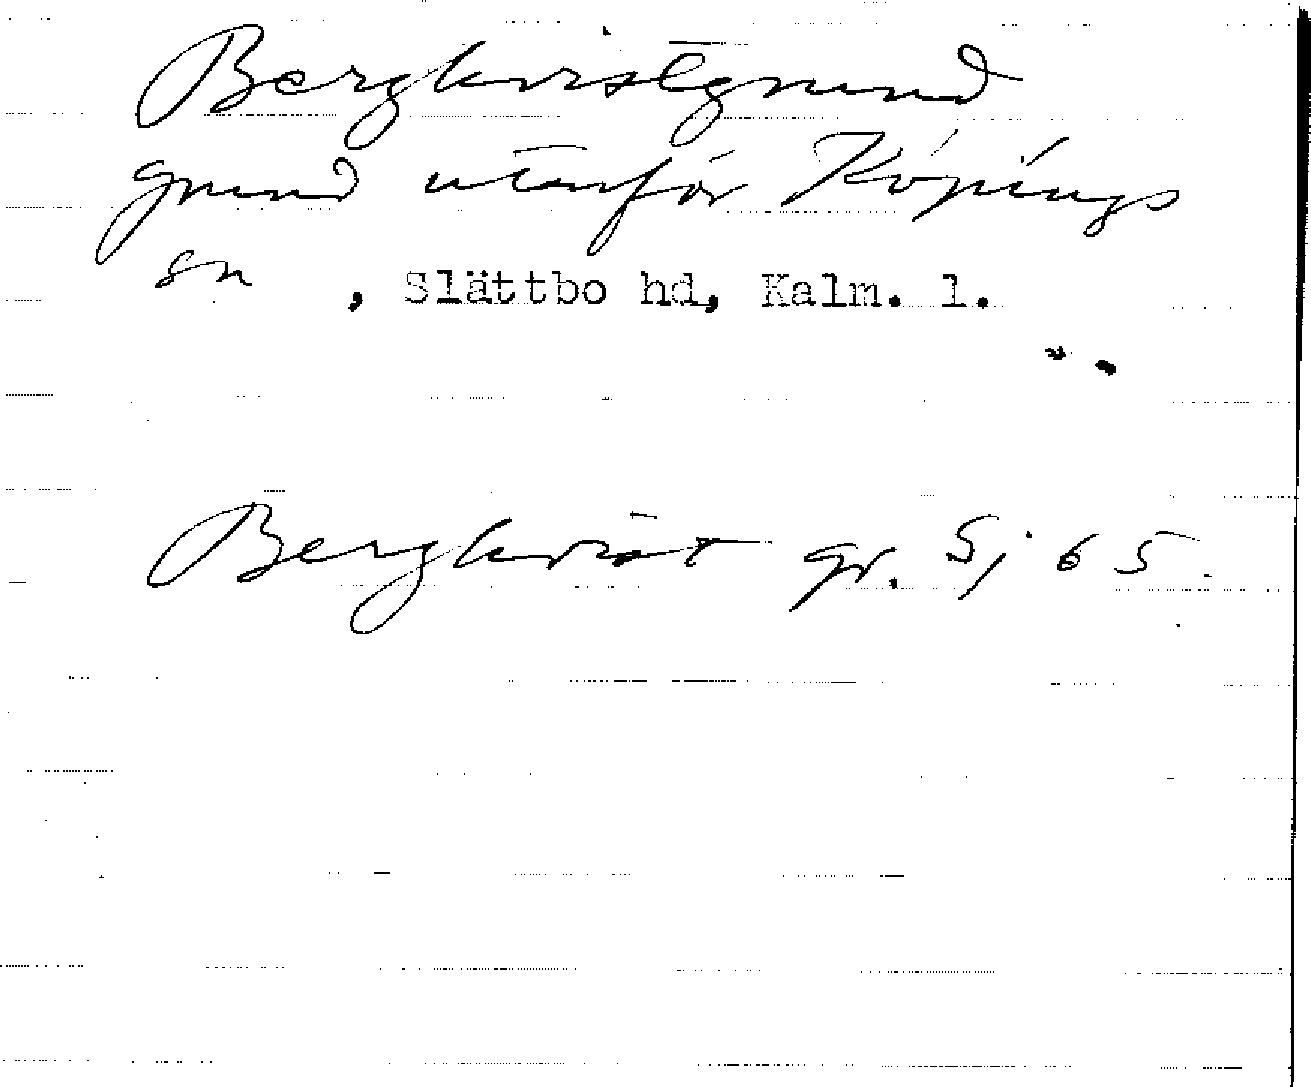 Bergkvistgrund
grund utanför Köpings
sn , Slättbo hd, Kalm. l.
Bergkvist gr. Sj 65